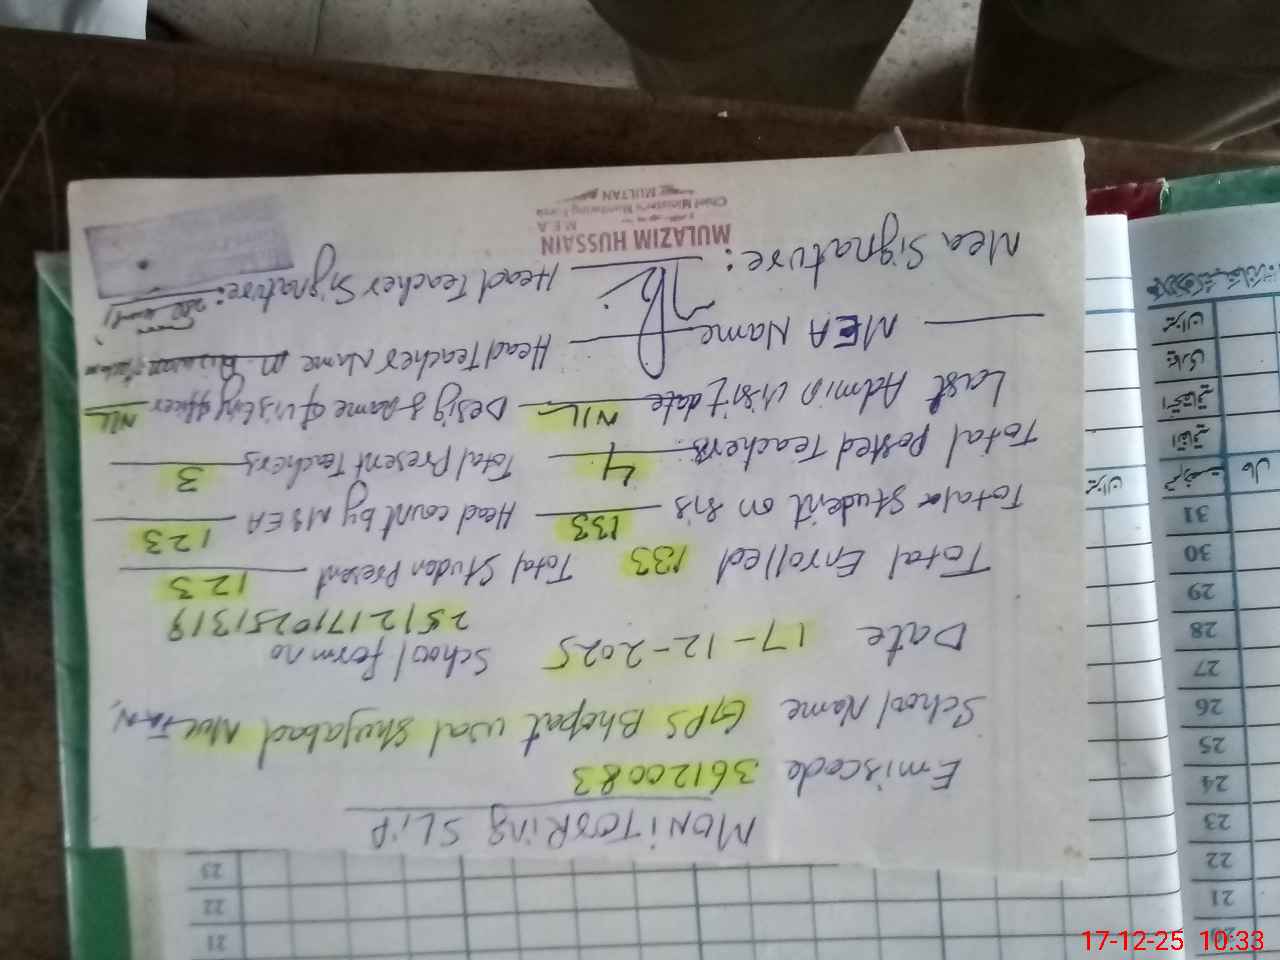 MONITORING SLIP
Emiscode 36120083
School Name GPS Bhopat wal Shujabad MULTAN
Date 17-12-2025 School form no
25121710251319
Total Enrolled 133 Total Studen Present 123
Total Student on SIS 133 Head count by MEA 123
Total posted Teachers 4 Total Present Teachers 3
Last Admin visit date NIL Desig & name of visting officer NIL
MEA Name Head Teacher Name
Mea Signature: Head Teacher Signature:
MULAZIM HUSSAIN
M.E.A
Chief Minister's Monitoring Force
MULTAN
20
21
22
23
24
25
26
27
28
29
30
31
میزان
21
22
23
17-12-25 10:33